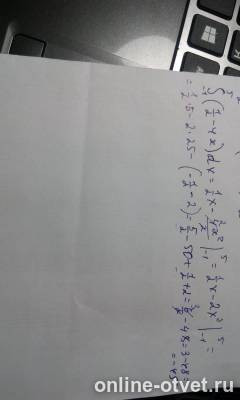 ∫₋₁⁵ (1/2 - 4x)dx = 1/2 x - 4x²/2 |₋₁⁵ = 1/2 x - 2x² |₋₁⁵ =
= 1/2 · 5 - 2 · 25 - (-1/2 - 2) = 5/2 - 50 + 1/2 + 2 = 6/2 - 48 = 3 - 48 =
= -45
online-otvet.ru